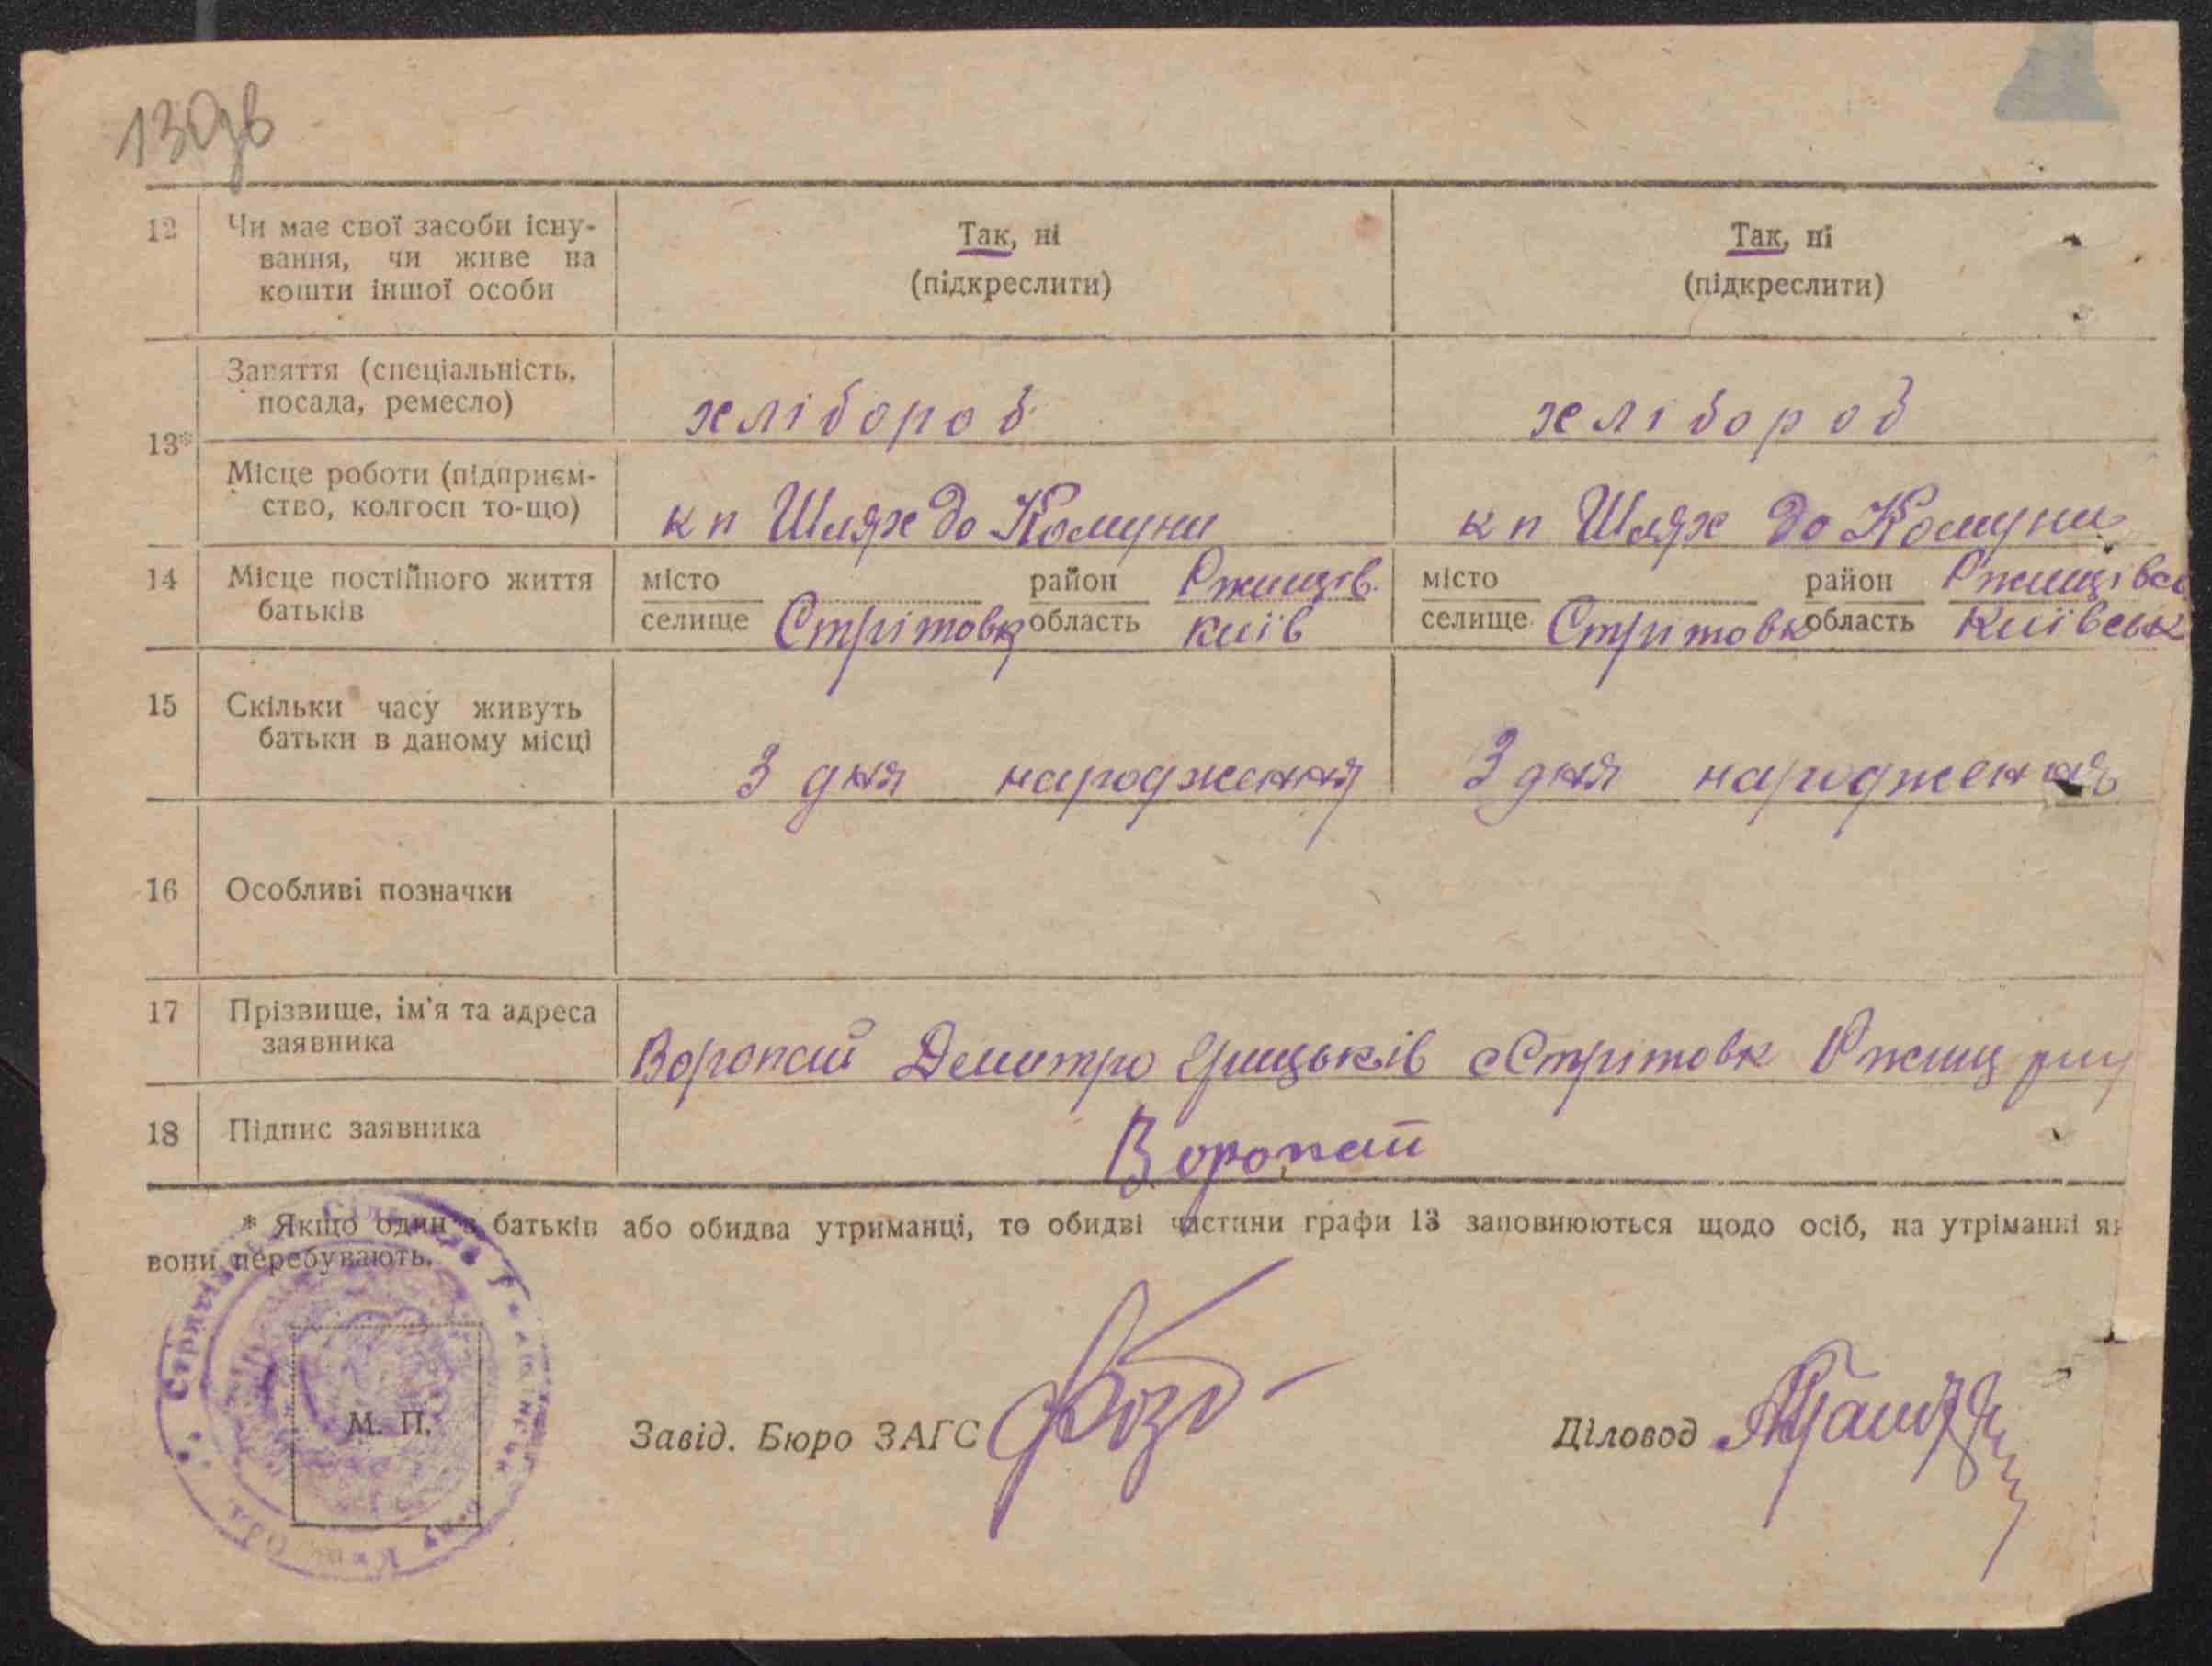 130зв
12 Чи має свої засоби існу- Так, ні Так, ні
вання, чи живе на
кошти іншої особи (підкреслити) (підкреслити)
Заняття (спеціальність,
посада, ремесло) хлібороб хлібороб
13*
Місце роботи (підприєм-
ство, колгосп то-що) кп Шлях до Комуни кп Шлях до Комуни
14 Місце постійного життя місто район Ржищів. місто район Ржищівськ
батьків селище Стрітовк область Київ селище Стрітовк область Київськ
15 Скільки часу живуть
батьки в даному місці З дня народження З дня народження
16 Особливі позначки
17 Прізвище, ім'я та адреса
заявника Воропай Демитро Грицьків с Стрітовк Ржищ
18 Підпис заявника Воропай
* Якщо один з батьків або обидва утриманці, то обидві частини графи 13 заповнюються щодо осіб, на утріманні
вони перебувають.
М. П.
Завід. Бюро ЗАГС
Діловод